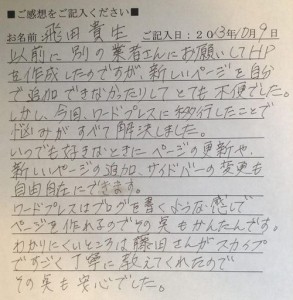 ■ご感想をご記入ください■
お名前 飛田 貴生 ご記入日:2013年10月9日
以前に別の業者さんにお願いしてHP
を作成したのですが、新しいページを自分
で追加できなかったりしてとても不便でした。
しかし、今回、ワードプレスに移行したことで
悩みがすべて解決しました。
いつでも好きなときにページの更新や、
新しいページの追加、サイドバーの変更も
自由自在にできます。
ワードプレスはブログを書くような感じで
ページを作れるのでその点もかんたんです。
わかりにくいところは藤田さんがスカイプ
ですごく丁寧に教えてくれたので
その点も安心でした。